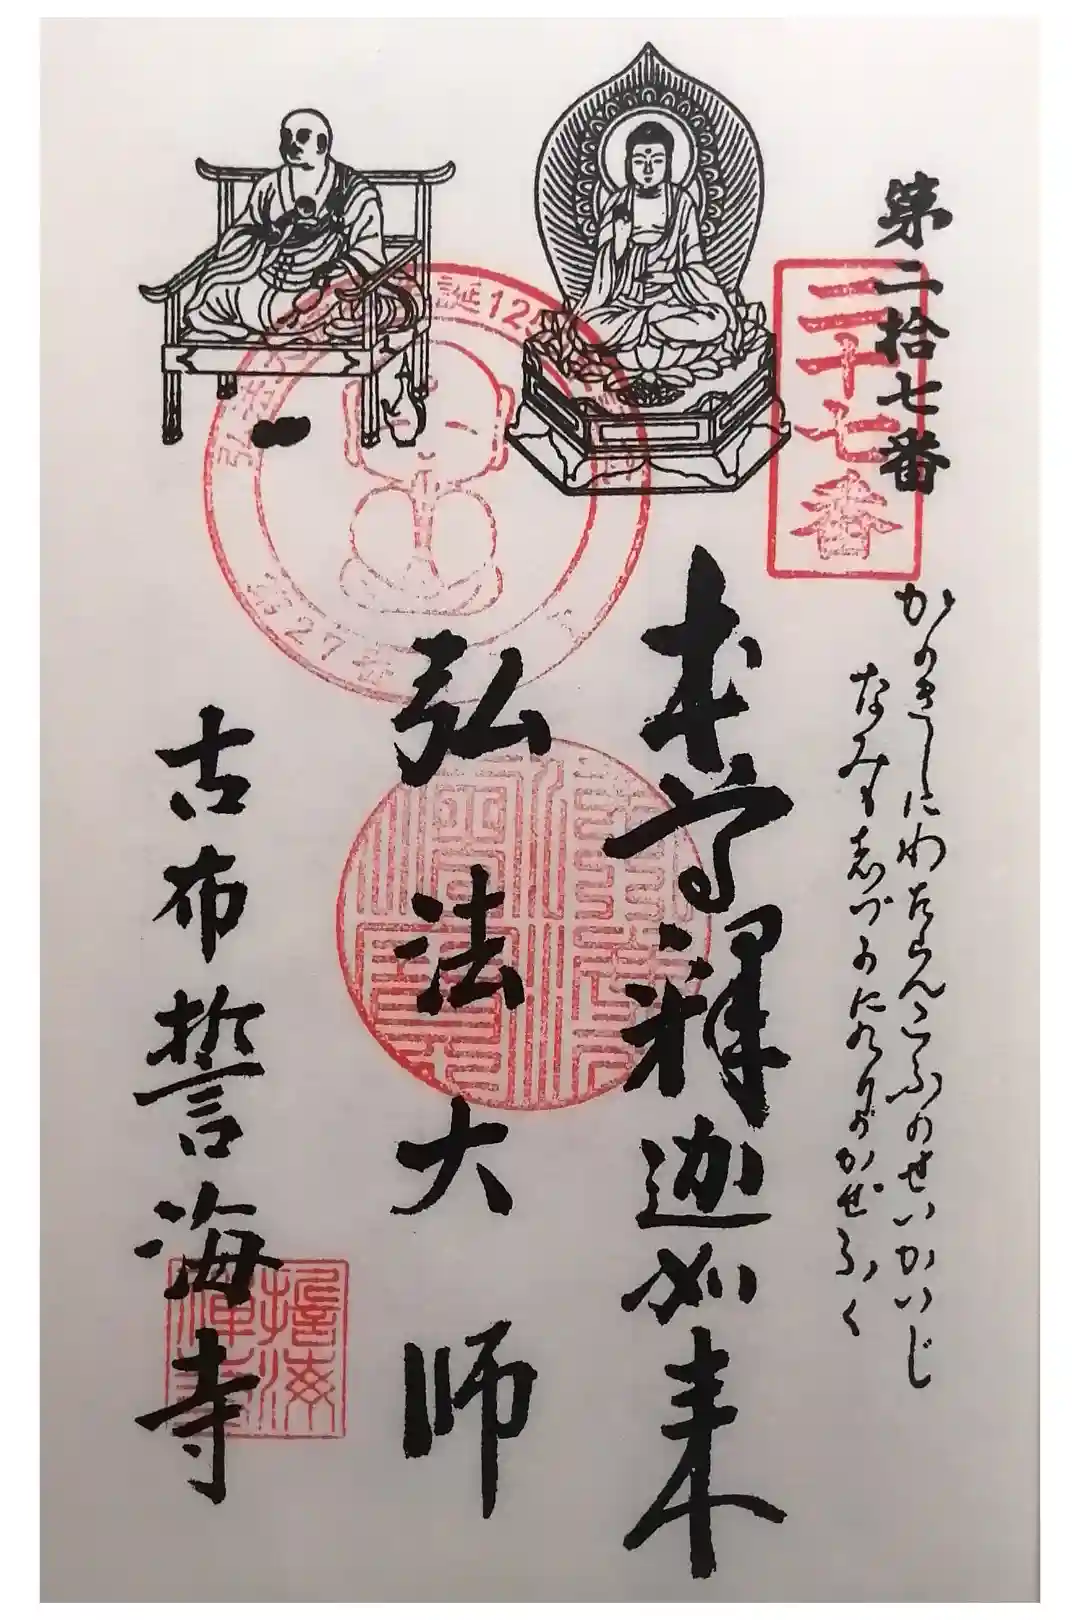 第二拾七番
二十七番
かのきしにわたらんこふのせいかいじ
なみもしづかにのりのかぜふく
本尊釋迦如来
弘法大師
誕125
第27番
古布誓海寺
誓海
禅寺